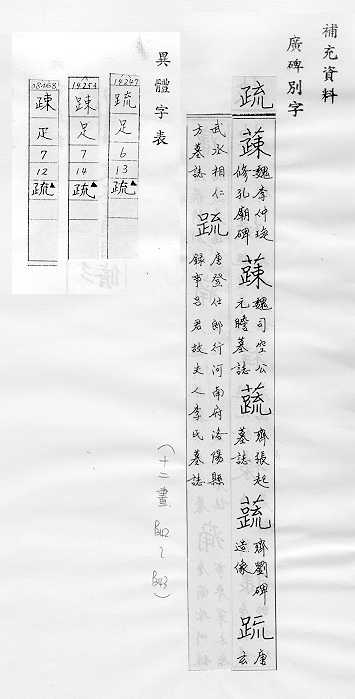 補充資料
廣碑別字
疏
蔬 魏李仲琁修孔廟碑
蔬 魏司空公元瞻墓誌
蔬 齊張起墓誌
蔬 齊劉碑造像
疏 唐玄
武丞相仁方墓誌
疏 唐登仕郎行河南府洛陽縣錄事呂君故夫人李氏墓誌
(十二畫 P442~P443)
異體字表
14247 疏 足 6 13 疏▲
14254 踈 足 7 14 疏▲
疎 疋 7 12 疏▲